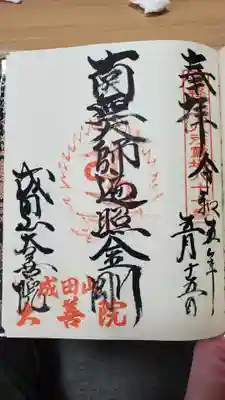 奉拝 令和五年
五月十五日
南無大師遍照金剛
成田山大善院
成田山
大善院